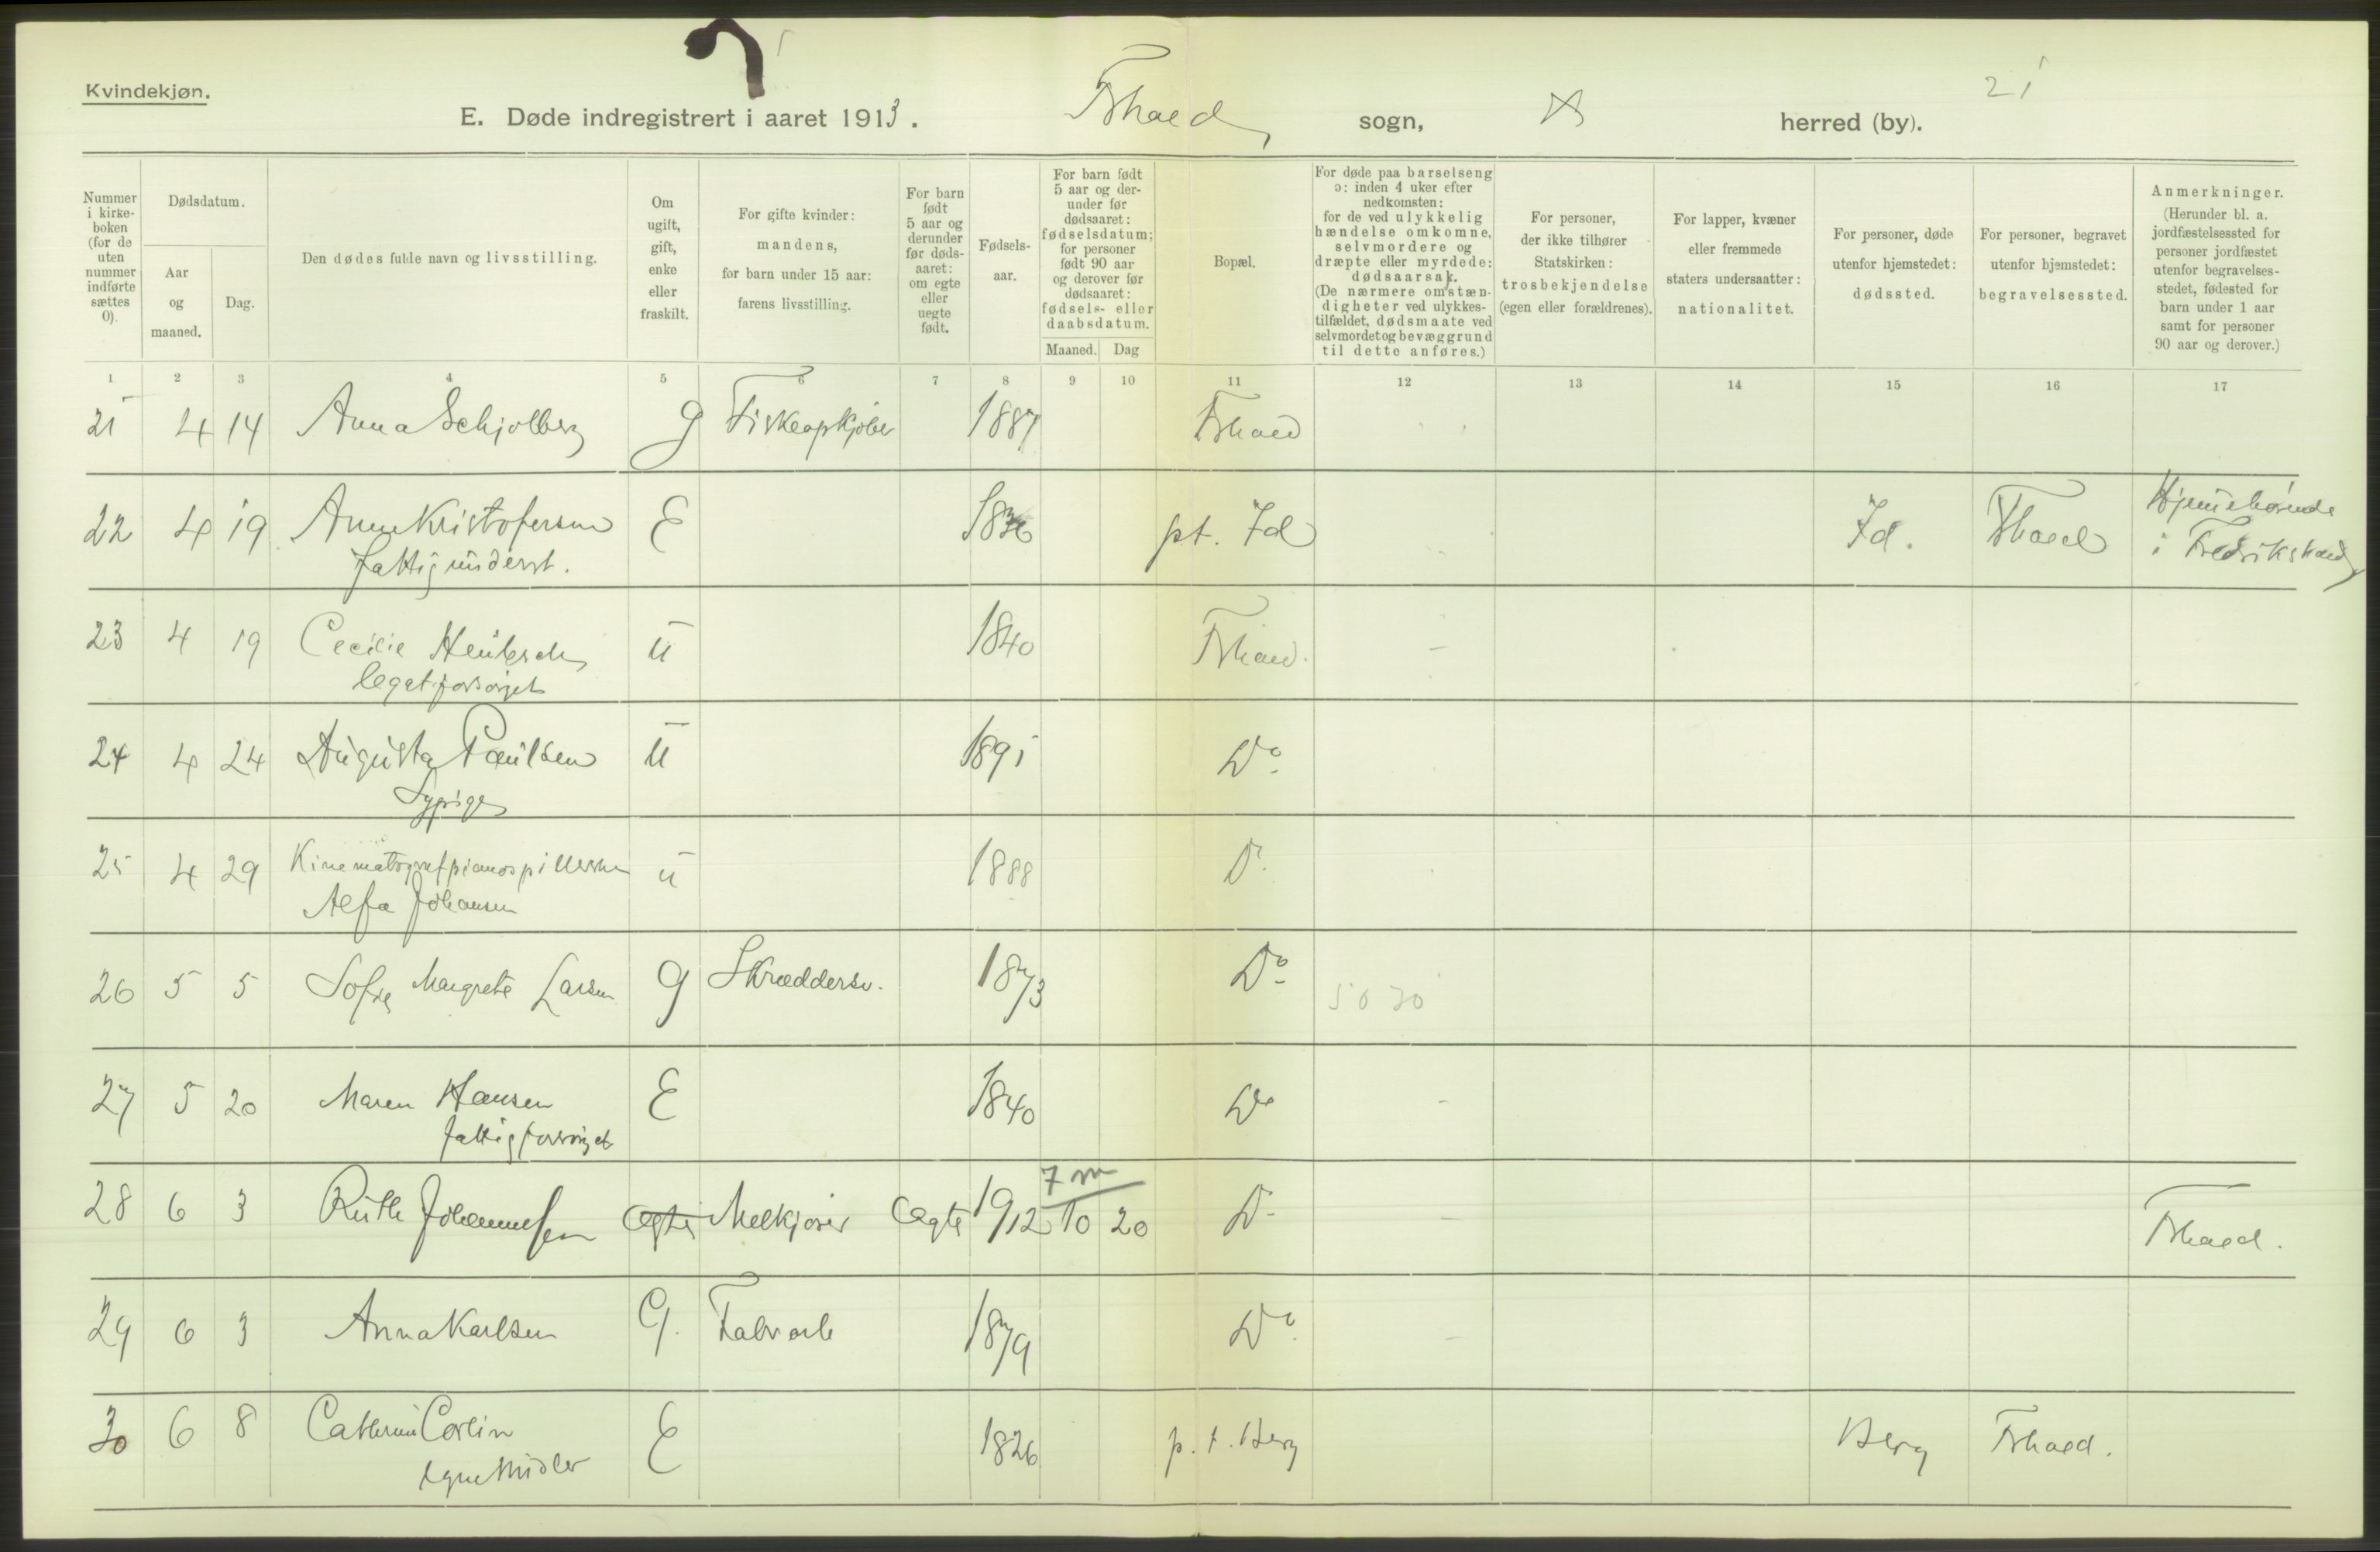 Kvindekjøn.
E. Døde indregistrert i aaret 1913. Fhald sogn, herred (by). 21
Nummer i kirkeboken (for de uten nummer indførte sættes 0).
Dødsdatum.
Aar og maaned.
Dag.
Den dødes fulde navn og livsstilling.
Om ugift, gift, enke eller fraskilt.
For gifte kvinder: mandens, for barn under 15 aar: farens livsstilling.
For barn født 5 aar og derunder før dødsaaret: om egte eller uegte født.
Fødselsaar.
For barn født 5 aar og derunder før dødsaaret: fødselsdatum; for personer født 90 aar og derover før dødsaaret: fødsels- eller daabsdatum.
Maaned. Dag
Bopæl.
For døde paa barselseng ɔ: inden 4 uker efter nedkomsten: for de ved ulykkelig hændelse omkomne, selvmordere og dræpte eller myrdede: dødsaarsak. (De nærmere omstændigheter ved ulykkestilfældet, dødsmaate ved selvmordet og bevæggrund til dette anføres.)
For personer, der ikke tilhører Statskirken: trosbekjendelse (egen eller forældrenes).
For lapper, kvæner eller fremmede staters undersaatter: nationalitet.
For personer, døde utenfor hjemstedet: dødssted.
For personer, begravet utenfor hjemstedet: begravelsessted.
Anmerkninger. (Herunder bl. a. jordfæstelsessted for personer jordfæstet utenfor begravelsesstedet, fødested for barn under 1 aar samt for personer 90 aar og derover.)
1 2 3 4 5 6 7 8 9 10 11 12 13 14 15 16 17
21 4 14 Anna Schjølberg g Fiskeopkjøber 1887 Fhald
22 4 19 Anne Kristofersen E 1836 pt. Id Id. Fhald Hjemehørende
fattigunderst. i Fredrikshald
23 4 19 Cecilie u 1840 Fhald.
legatforsørget
24 4 24 Augusta Paulsen u 1891 Do
Sypige
25 4 29 Kinematografpianospillerske u 1888 Do
Alfa Johansen
26 5 5 Sofie Margrete Larsen g Skræddersv. 1873 Do 5030
27 5 20 Maren Hansen E 1840 Do
fattigforsørget
7 m
28 6 3 Ruth Johannessen egte Melkjører egte 1912 10 20 Do Fhald.
29 6 3 Anna Karlsen G. Fabrarb 1879 Do
30 6 8 Cathrine Corlin E 1826 p. t. Berg Berg Fhald.
egne Midler